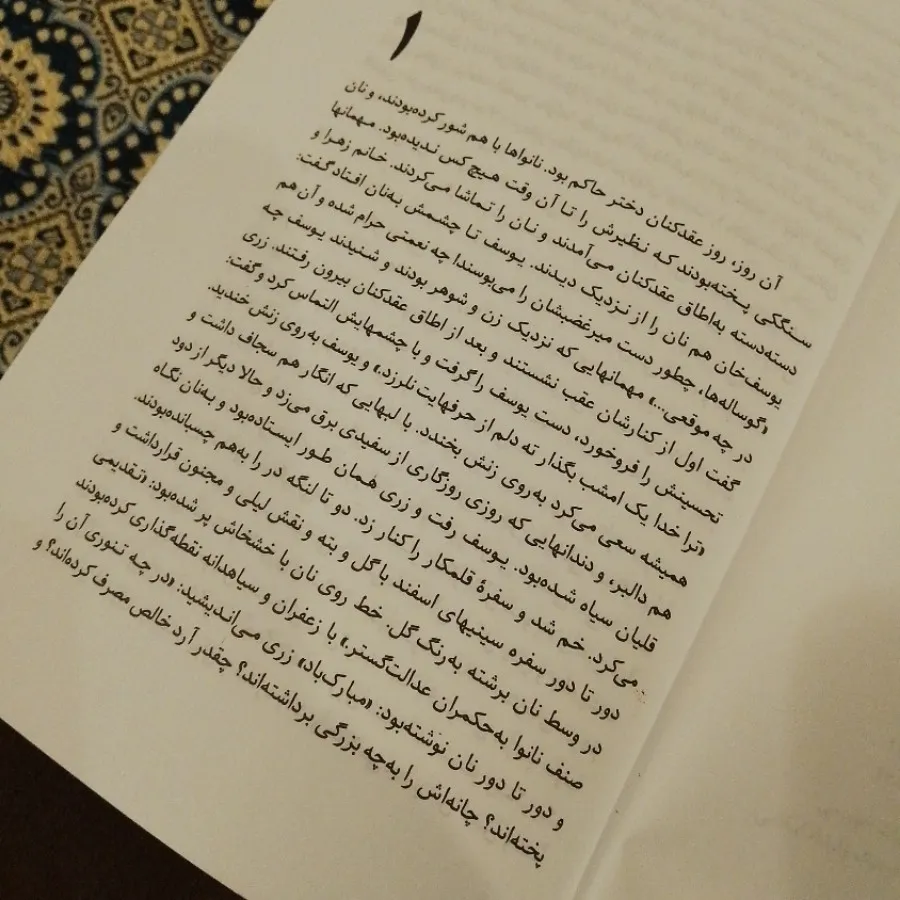 ۱
آن روز، روز عقدکنان دختر حاکم بود. نانواها با هم شور کرده‌بودند، و نان
سنگکی پخته‌بودند که نظیرش را تا آن وقت هیچ کس ندیده‌بود. مهمانها
دسته‌دسته به‌اطاق عقدکنان می‌آمدند و نان را تماشا می‌کردند. خانم زهرا و
یوسف‌خان هم نان را از نزدیک دیدند. یوسف تا چشمش به‌نان افتاد گفت:
«گوساله‌ها، چطور دست میرغضبشان را می‌بوسند! چه نعمتی حرام شده و آن هم
در چه موقعی...» مهمانهایی که نزدیک زن و شوهر بودند و شنیدند یوسف چه
گفت اول از کنارشان عقب نشستند و بعد از اطاق عقدکنان بیرون رفتند. زری
تحسینش را فروخورد، دست یوسف را گرفت و با چشمهایش التماس کرد و گفت:
«ترا خدا یک امشب بگذار ته دلم از حرفهایت نلرزد.» و یوسف به‌روی زنش خندید.
همیشه سعی می‌کرد به‌روی زنش بخندد. با لبهایی که انگار هم سجاف داشت و
هم دالبر، و دندانهایی که روزی روزگاری از سفیدی برق می‌زد و حالا دیگر از دود
قلیان سیاه شده‌بود. یوسف رفت و زری همان طور ایستاده‌بود و به‌نان نگاه
می‌کرد. خم شد و سفرهٔ قلمکار را کنار زد. دو تا لنگه در را به‌هم چسبانده‌بودند.
دور تا دور سفره سینیهای اسفند با گل و بته و نقش لیلی و مجنون قرارداشت و
در وسط نان برشته به‌رنگ گل. خط روی نان با خشخاش پر شده‌بود: «تقدیمی
صنف نانوا به‌حکمران عدالت‌گستر.» با زعفران و سیاهدانه نقطه‌گذاری کرده‌بودند
و دور تا دور نان نوشته‌بود: «مبارک‌باد» زری می‌اندیشید: «در چه تنوری آن را
پخته‌اند؟ چانه‌اش را به‌چه بزرگی برداشته‌اند؟ چقدر آرد خالص مصرف کرده‌اند؟ و